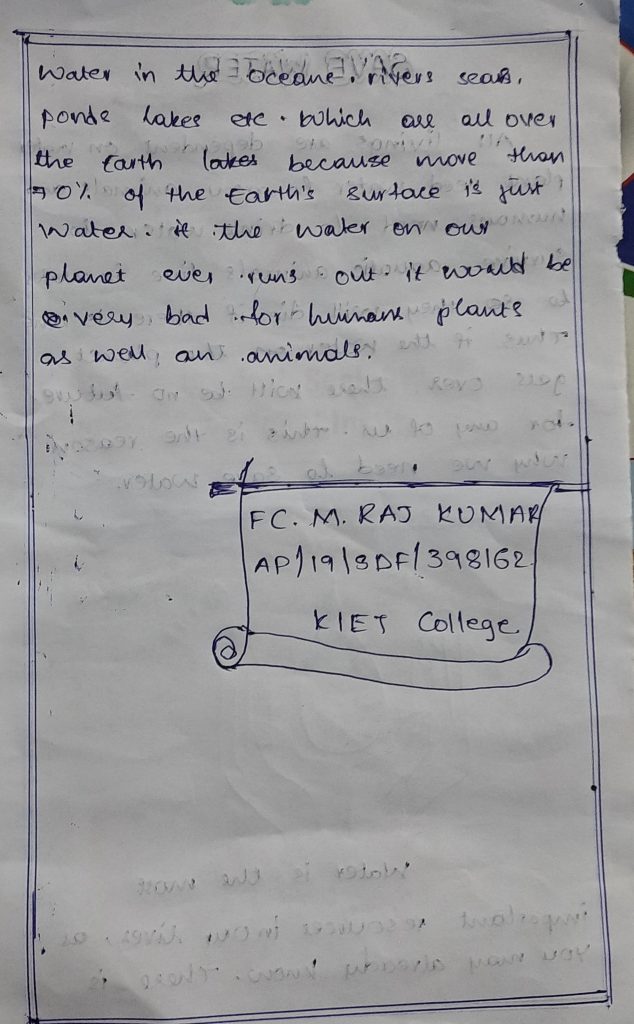 Water in the oceane, rivers seas,
ponds lakes etc. Which are all over
the Earth lakes because more than
70% of the Earth's surface is just
Water. if the water on our
planet ever runs out. it would be
very bad for humans plants
as well, an animals.
FC. M. RAJ KUMAR
AP/19/SDF/398162
KIET College